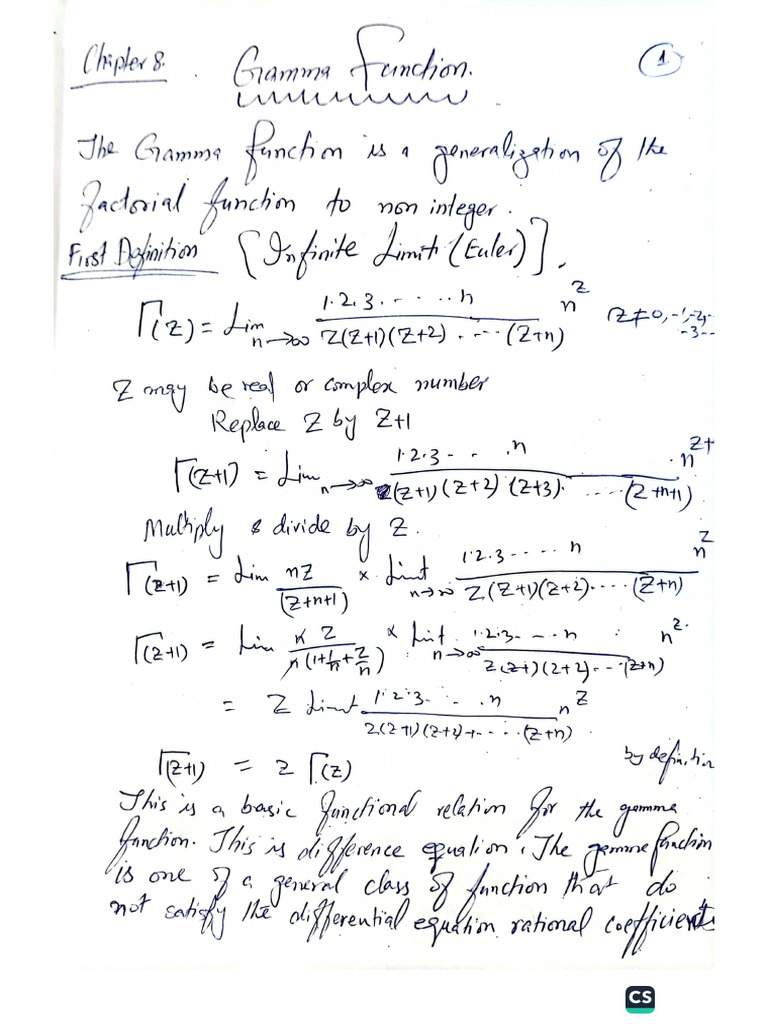 Chapter 8. Gamma Function. 1
The Gamma function is a generalization of the
factorial function to non integer.
First Definition {Infinite Limit (Euler)}.
Γ(z) = Lim n→∞ 1·2·3·-····n / z(z+1)(z+2)·····(z+n) n^z (z≠0,-1,-2,-
-3--
Z may be real or complex number
Replace Z by Z+1
Γ(z+1) = Lim n→∞ 1·2·3-··n / (z+1)(z+2)(z+3)·····(z+n+1) · n^z+
Multiply & divide by Z.
Γ(z+1) = Lim nz / (z+n+1) × Limt n→∞ 1·2·3-···n / z(z+1)(z+2)·····(z+n) n^z
Γ(z+1) = Lim n z / n(1+1/n+z/n) × Lit n→∞ 1·2·3·--··n / z(z+1)(z+2)-··(z+n) n^z·
= z Limt 1·2·3·-··n / z(z+1)(z+2)+·····(z+n) n^z
Γ(z+1) = z Γ(z) by definition
This is a basic functional relation for the gamma
function. This is difference equation. The gamma function
is one of a general class of function that do
not satisfy the differential equation rational coefficients
CS